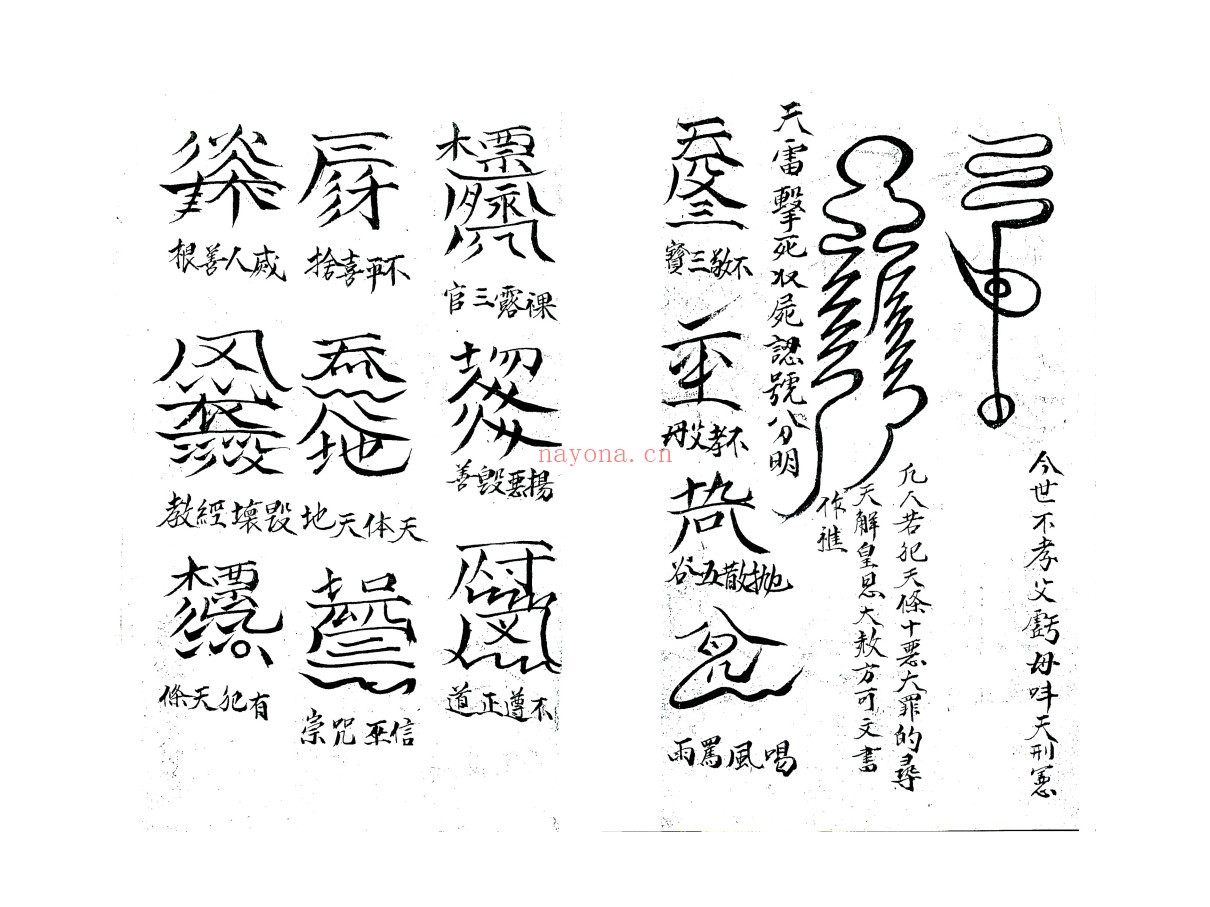 今世不孝父虧母吽天刑憲
凡人若犯天條十惡大罪的尋
天解皇恩大赦方可文書
作誰
天雷擊死收屍認號分明
不敬三寶
不孝父母
拋散五谷
喝風罵雨
裸露三官
揚惡毀善
不遵正道
不平喜捨
天体天地
信巫咒祟
烕人善根
毀壞經教
有犯天條
nayona.cn